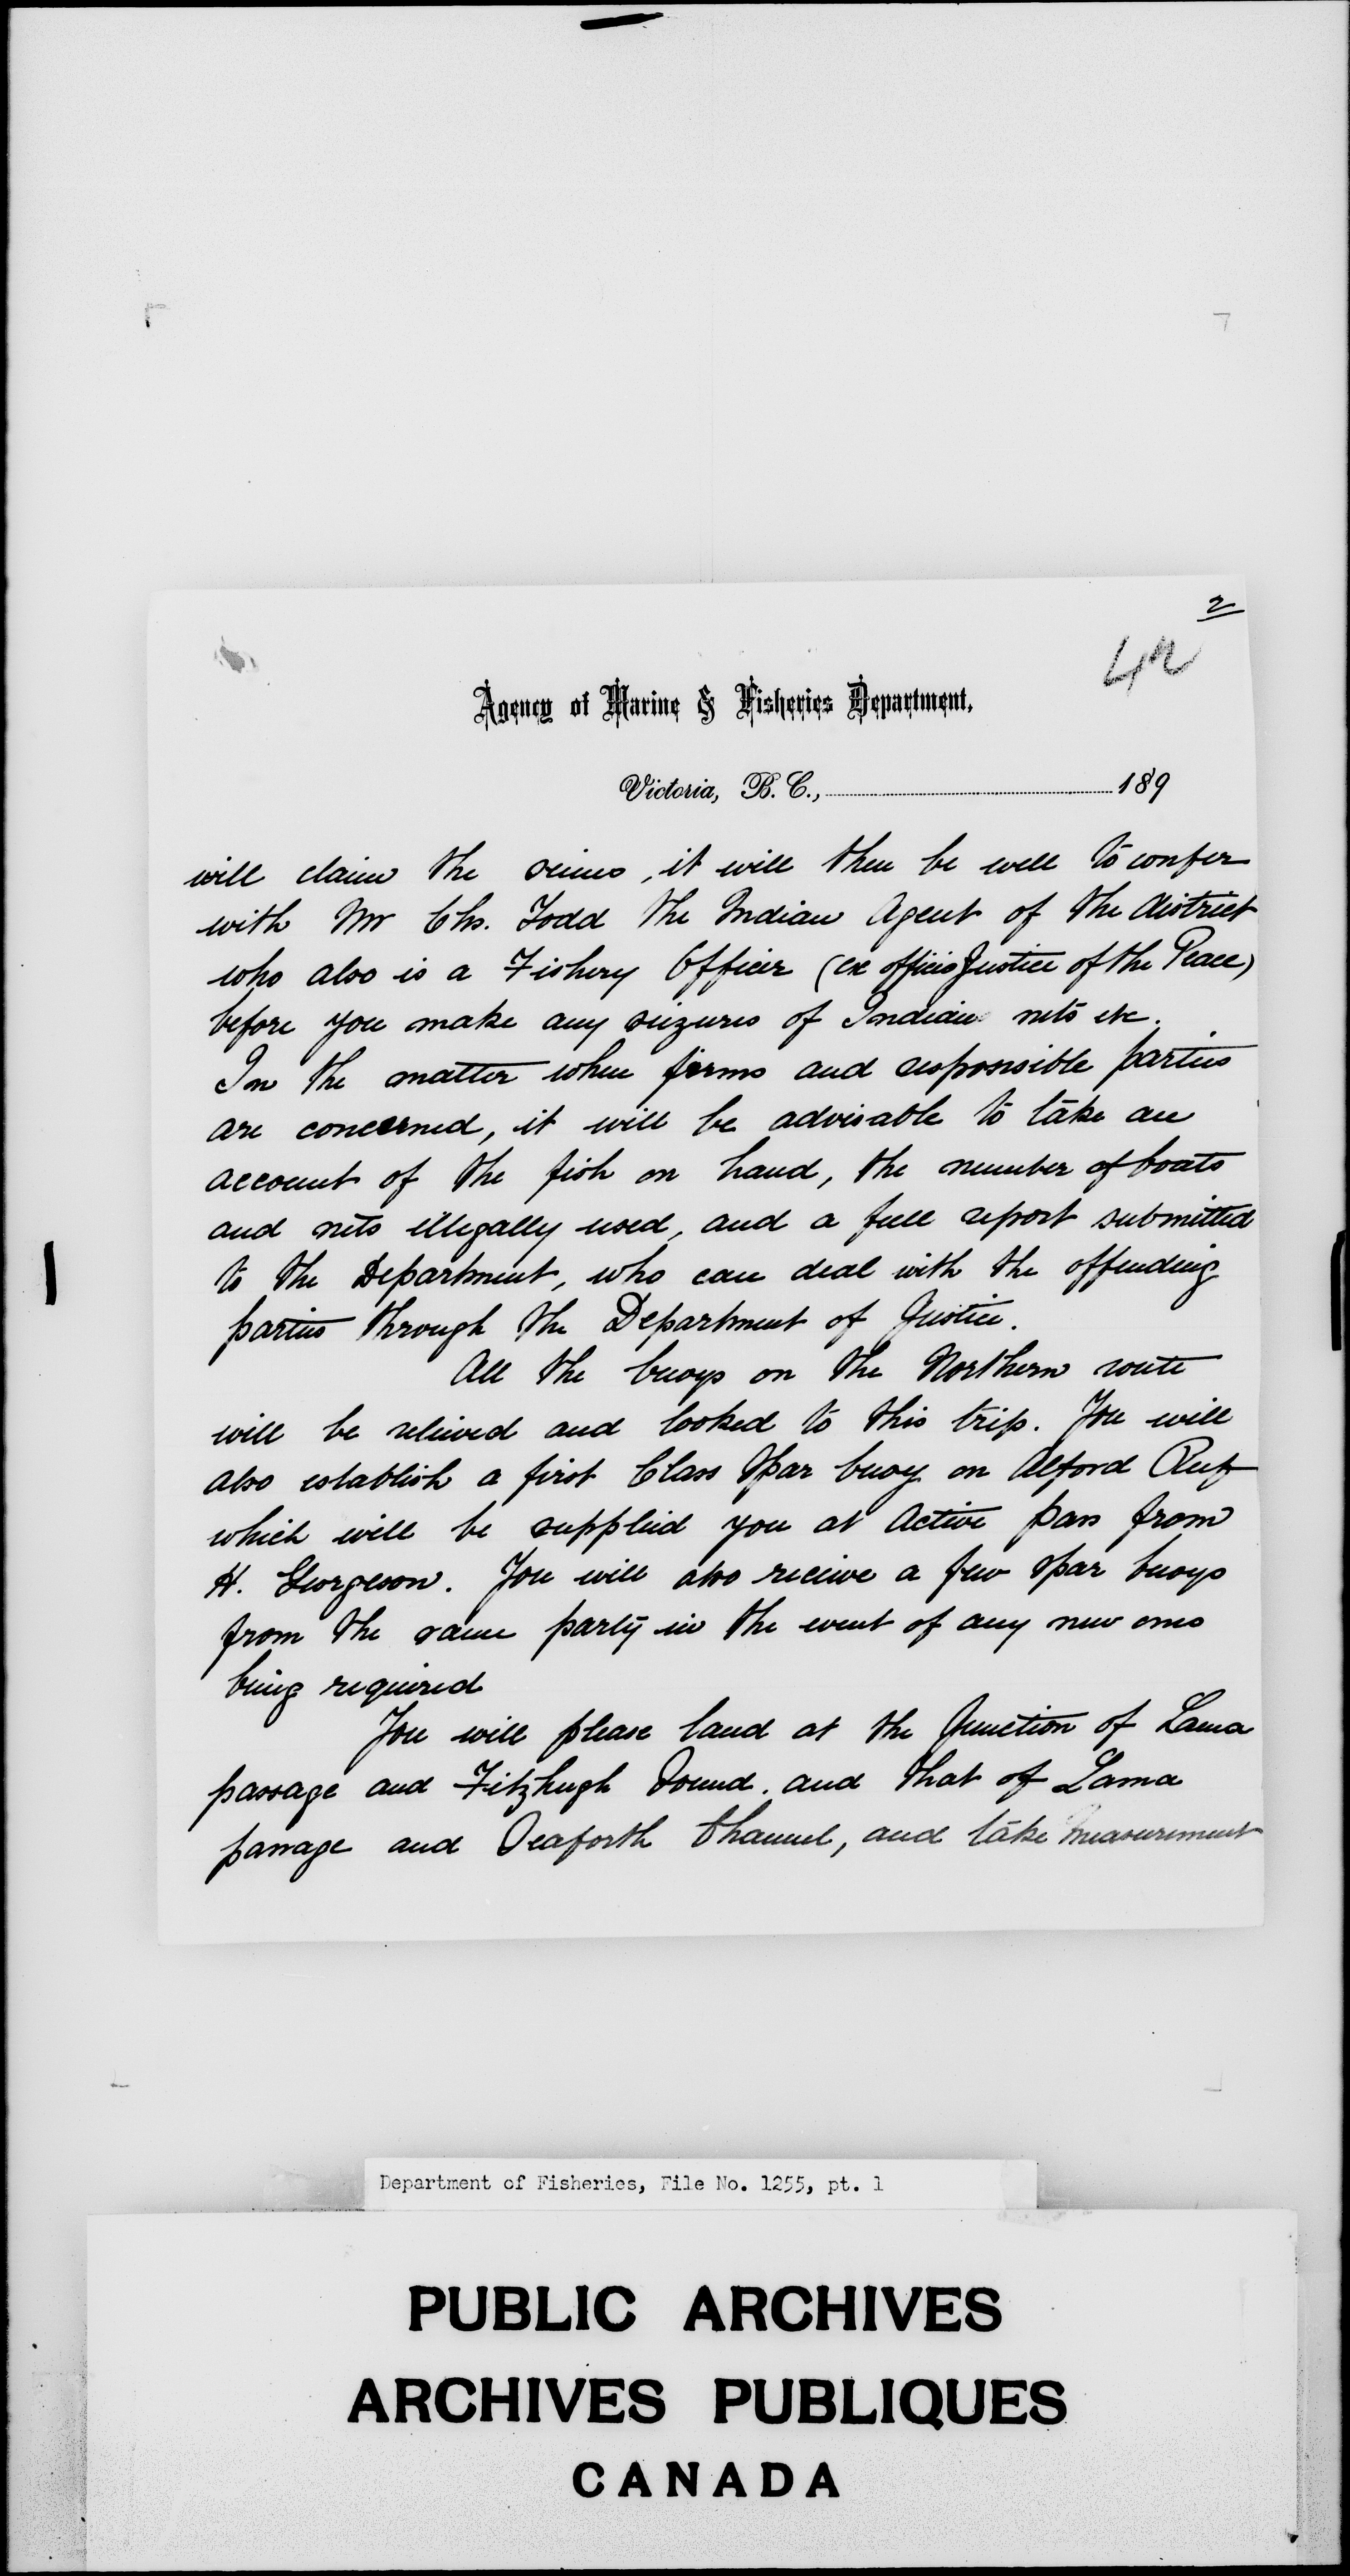 2
42
Agency of Marine & Fisheries Department,
Victoria, B. C., 189
will claim the seines, it will then be well to confer
with Mr Chs. Todd the Indian Agent of the district
who also is a Fishery Officer (ex officio Justice of the Peace)
before you make any seizures of Indian nets etc.
In the matter when firms and responsible parties
are concerned, it will be advisable to take an
account of the fish on hand, the number of boats
and nets illegally used, and a full report submitted
to the Department, who can deal with the offending
parties through the Department of Justice.
All the buoys on the Northern route
will be relieved and looked to this trip. You will
also establish a first Class Spar buoy on Alford Reef
which will be supplied you at Active pass from
H. Georgeson. You will also receive a few Spar buoys
from the same party in the event of any new ones
being required
You will please land at the Junction of Lama
passage and Fitzhugh Sound. and that of Lama
passage and Seaforth Channel, and take measurement
Department of Fisheries, File No. 1255, pt. 1
PUBLIC ARCHIVES
ARCHIVES PUBLIQUES
CANADA